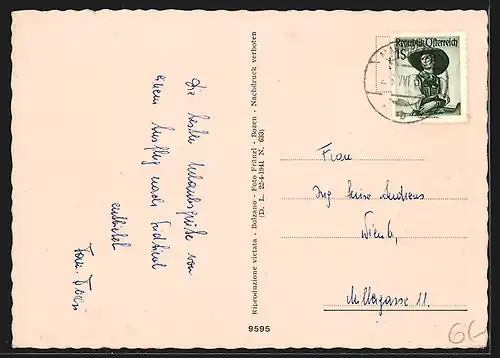 Die besten Urlaubsgrüße von
einem Ausflug nach Südtirol
entbietet
Fam.
Riproduzione vietata - Bolzano - Foto Fränzl - Bozen - Nachdruck verboten
(D. L. 22-4-1941 N. 633)
9595
Republik Österreich
1S
Frau
Ing. Luise Andreas
Wien 6,
Millergasse 11.
6.-